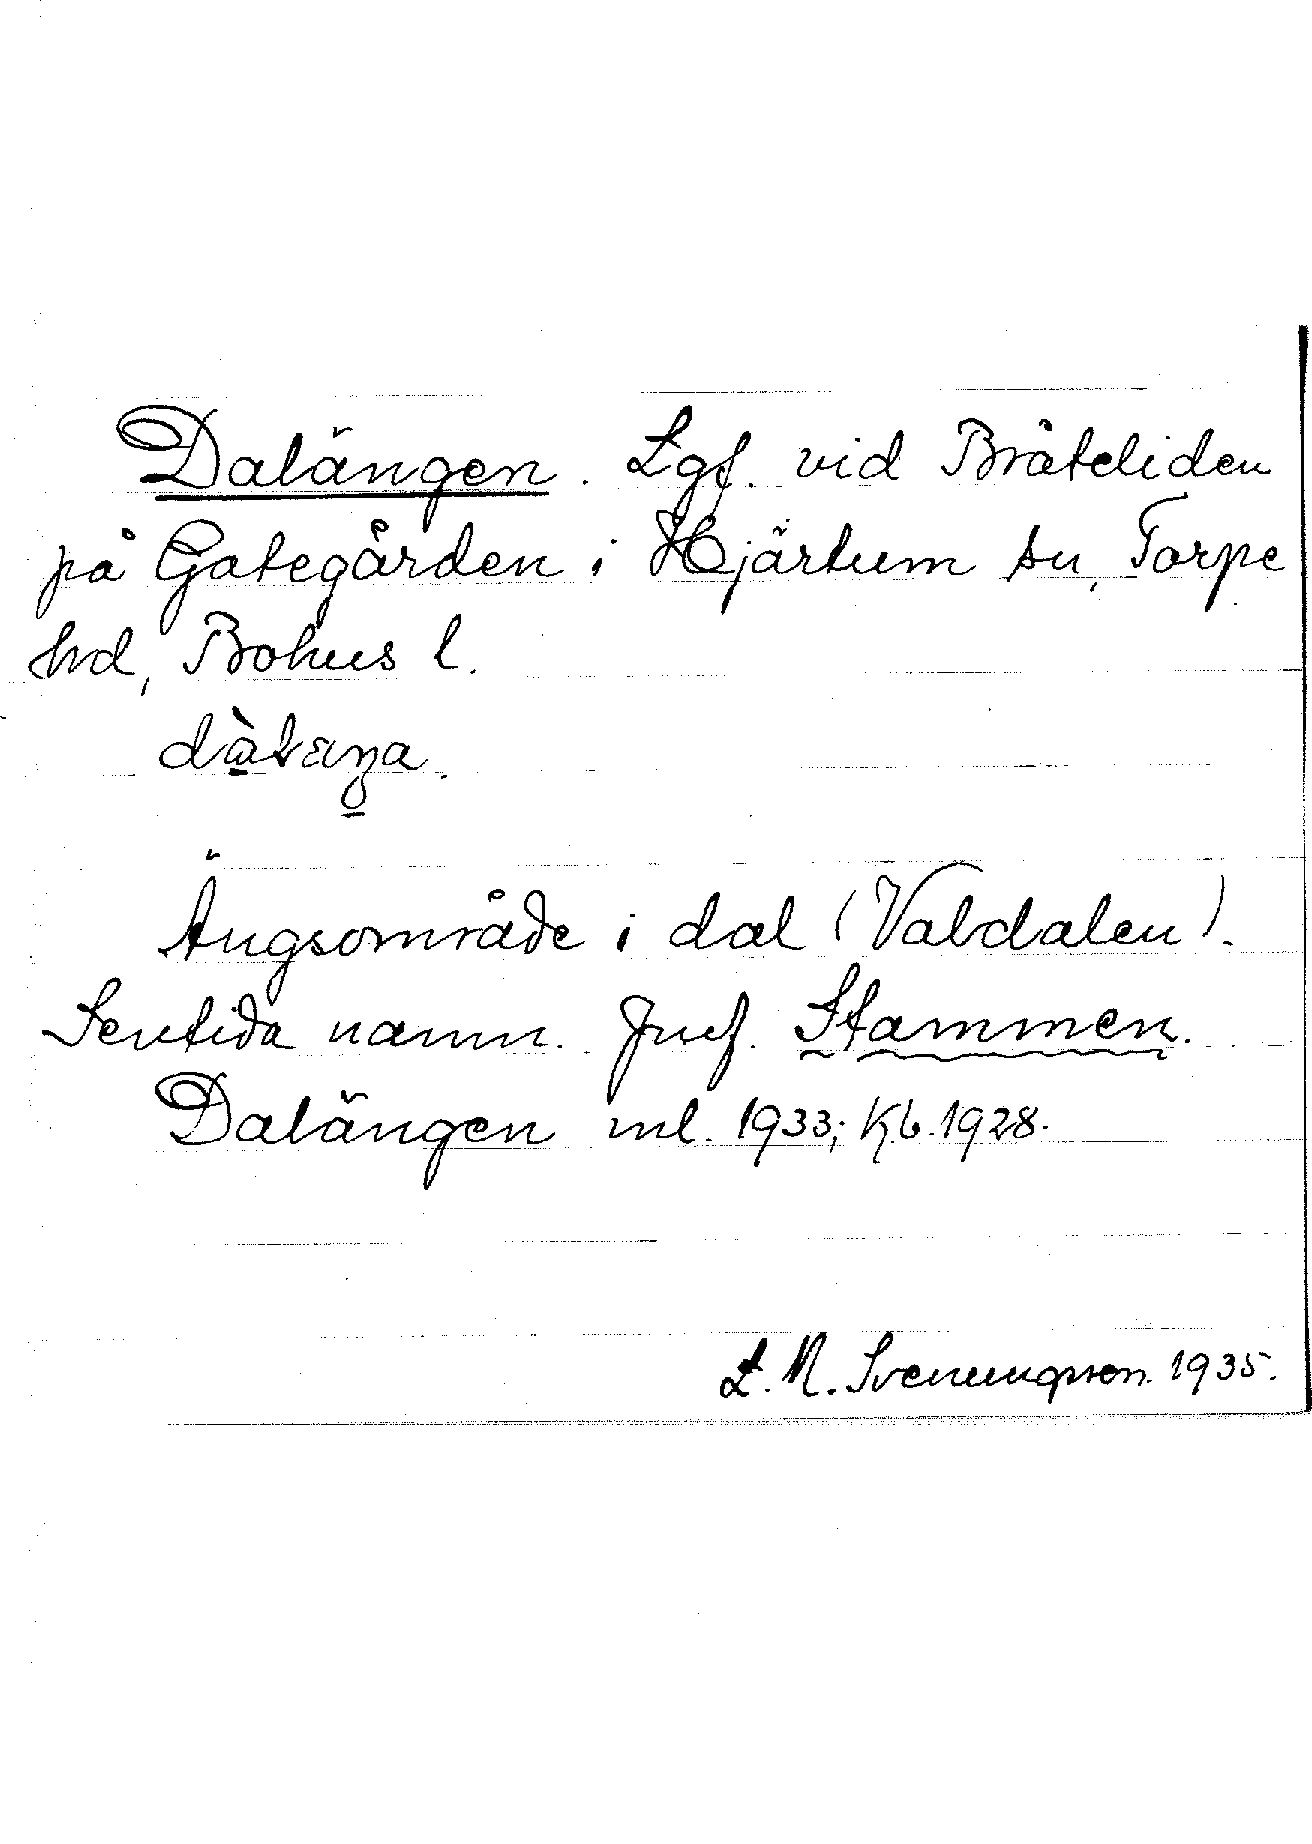 Dalängen. Lgf. vid Bråteliden
på Gategården i Hjärtum sn, Torpe
hd, Bohus l.
Ängsområde i dal (Valdalen).
Sentida namn. Jmf. Stammen.
Dalängen ml. 1933; Kb. 1928.
L. M. Svenungsson 1935.